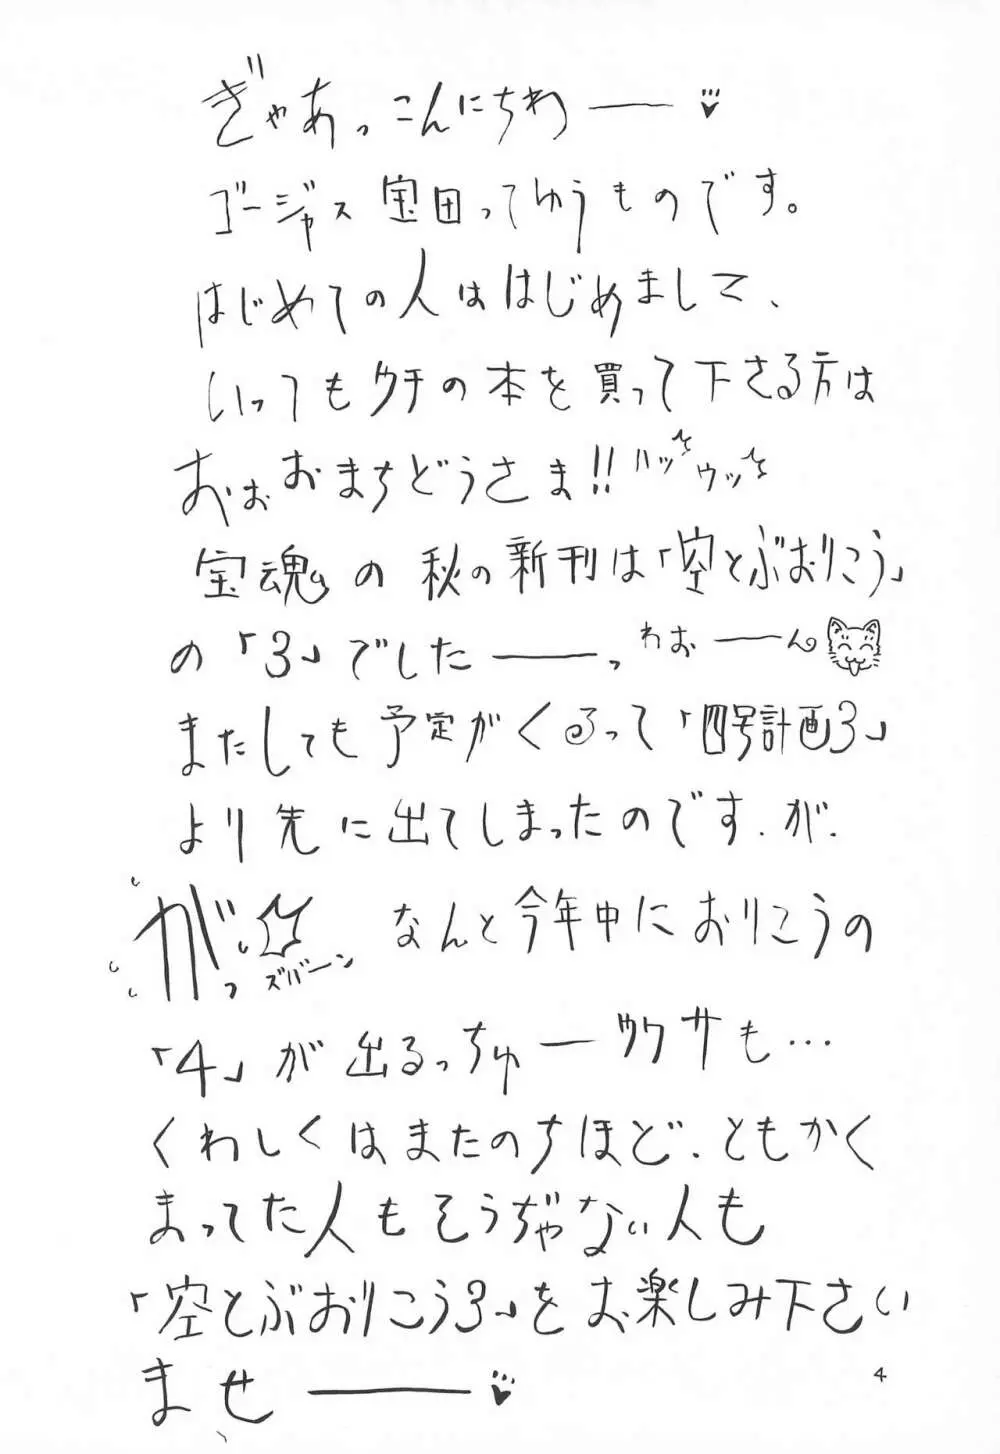 ぎゃあっ こんにちわ――♥
ゴージャス宝田ってゆうものです。
はじめての人ははじめまして、
いっつもウチの本を買って下さる方は
おぉおまちどうさま!! ハッ ウッ
宝魂の秋の新刊は「空とぶおりこう」
の「3」でした――っ わおーーん
またしても予定がくるって「四号計画3」
より先に出てしまったのです.が.
がっ ズバーン なんと今年中におりこうの
「4」が出るっちゅーウワサも…
くわしくはまたのちほど、ともかく
まってた人もそうぢゃない人も
「空とぶおりこう3」をお楽しみ下さい
ませ――♥
4